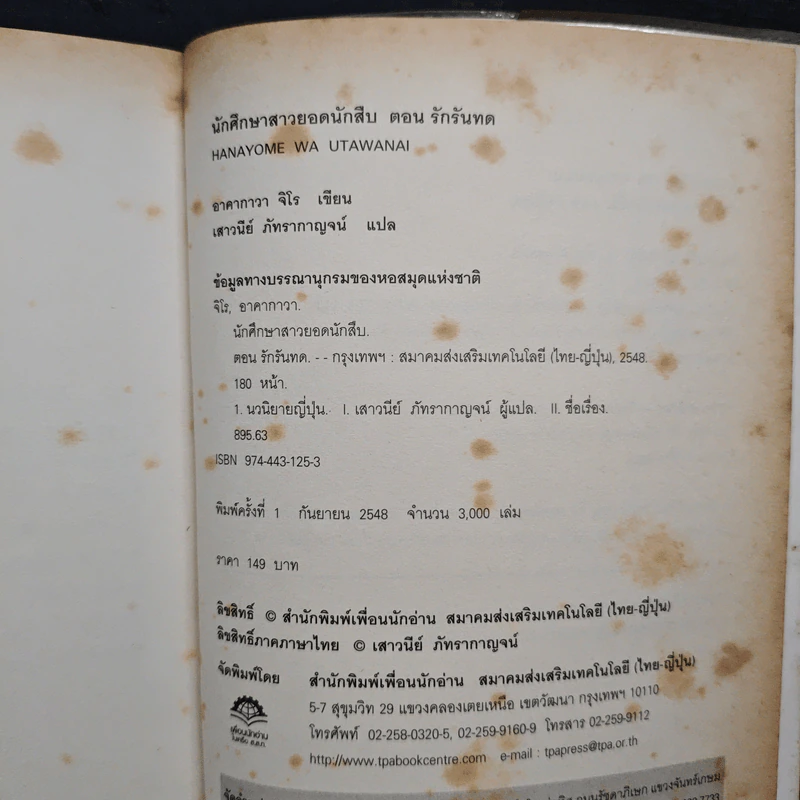 นักศึกษาสาวยอดนักสืบ ตอน รักรันทด
HANAYOME WA UTAWANAI
อาคากาวา จิโร เขียน
เสาวนีย์ ภัทรากาญจน์ แปล
ข้อมูลทางบรรณานุกรมของหอสมุดแห่งชาติ
จิโร, อาคากาวา.
นักศึกษาสาวยอดนักสืบ.
ตอน รักรันทด. - - กรุงเทพฯ : สมาคมส่งเสริมเทคโนโลยี (ไทย-ญี่ปุ่น), 2548.
180 หน้า.
1. นวนิยายญี่ปุ่น. I. เสาวนีย์ ภัทรากาญจน์ ผู้แปล. II. ชื่อเรื่อง.
895.63
ISBN 974-443-125-3
พิมพ์ครั้งที่ 1 กันยายน 2548 จำนวน 3,000 เล่ม
ราคา 149 บาท
ลิขสิทธิ์ © สำนักพิมพ์เพื่อนนักอ่าน สมาคมส่งเสริมเทคโนโลยี (ไทย-ญี่ปุ่น)
ลิขสิทธิ์ภาคภาษาไทย © เสาวนีย์ ภัทรากาญจน์
จัดพิมพ์โดย สำนักพิมพ์เพื่อนนักอ่าน สมาคมส่งเสริมเทคโนโลยี (ไทย-ญี่ปุ่น)
5-7 สุขุมวิท 29 แขวงคลองเตยเหนือ เขตวัฒนา กรุงเทพฯ 10110
โทรศัพท์ 02-258-0320-5, 02-259-9160-9 โทรสาร 02-259-9112
เพื่อนนักอ่าน
ในเครือ ส.ส.ท.
http://www.tpabookcentre.com e-mail : tpapress@tpa.or.th
ถนนรัชดาภิเษก แขวงจันทร์เกษม